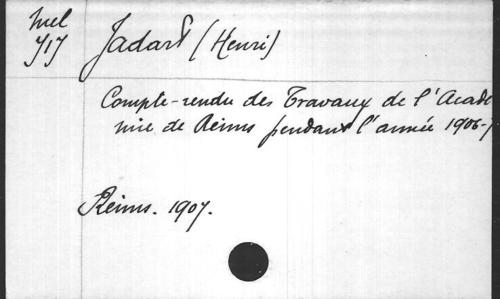 Mel
717
Jadart (Henri)
Compte-rendu des Travaux de l'Acadé
mie de Reims pendant l'année 1906-7
Reims. 1907.